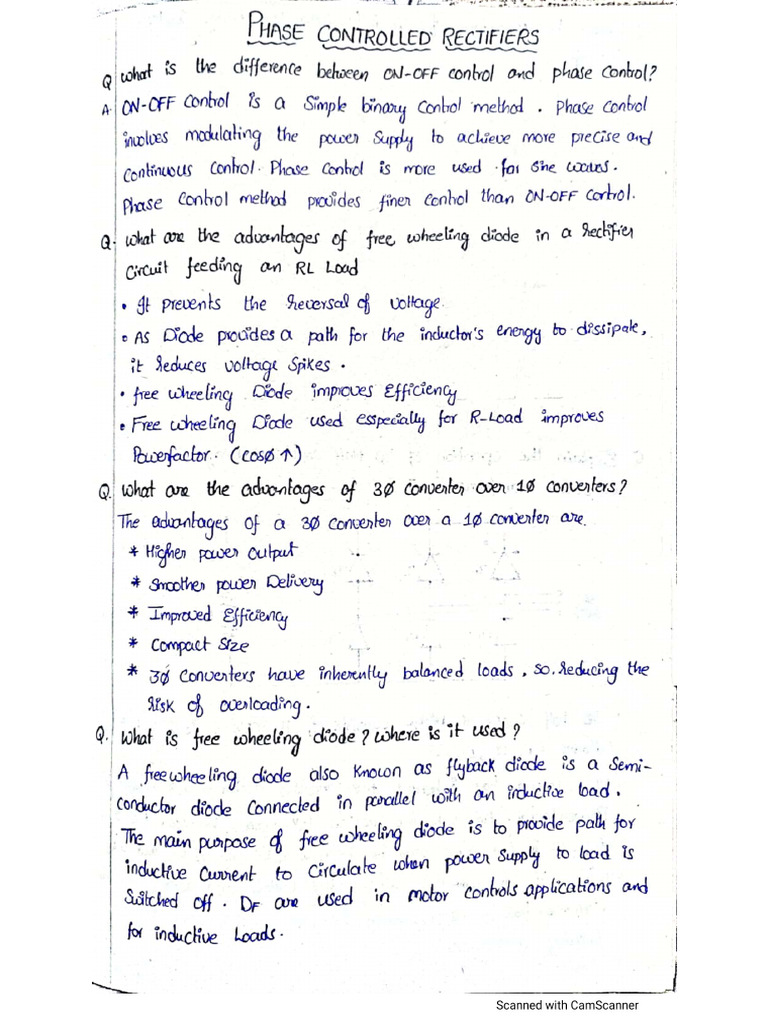 PHASE CONTROLLED RECTIFIERS
Q what is the difference between ON-OFF control and phase control?
A. ON-OFF control is a simple binary control method. Phase control
involves modulating the power supply to achieve more precise and
continuous control. Phase control is more used for sine waves.
Phase control method provides finer control than ON-OFF control.
Q. What are the advantages of free wheeling diode in a rectifier
circuit feeding an RL Load
• It prevents the reversal of voltage.
• As Diode provides a path for the inductor's energy to dissipate,
it reduces voltage spikes.
• free wheeling Diode improves Efficiency
• Free wheeling Diode used esspecially for R-Load improves
Powerfactor. (cosø ↑)
Q. What are the advantages of 3ø converter over 1ø converters?
The advantages of a 3ø converter over a 1ø converter are.
* Higher power output
* Smoother power Delivery
* Improved Efficiency
* Compact Size
* 3ø converters have inherently balanced loads, so. reducing the
risk of overloading.
Q. What is free wheeling diode? where is it used?
A freewheeling diode also known as flyback diode is a Semi-
conductor diode connected in parallel with an inductive load.
The main purpose of free wheeling diode is to provide path for
inductive current to circulate when power supply to load is
switched off. DF are used in motor controls applications and
for inductive Loads.
Scanned with CamScanner